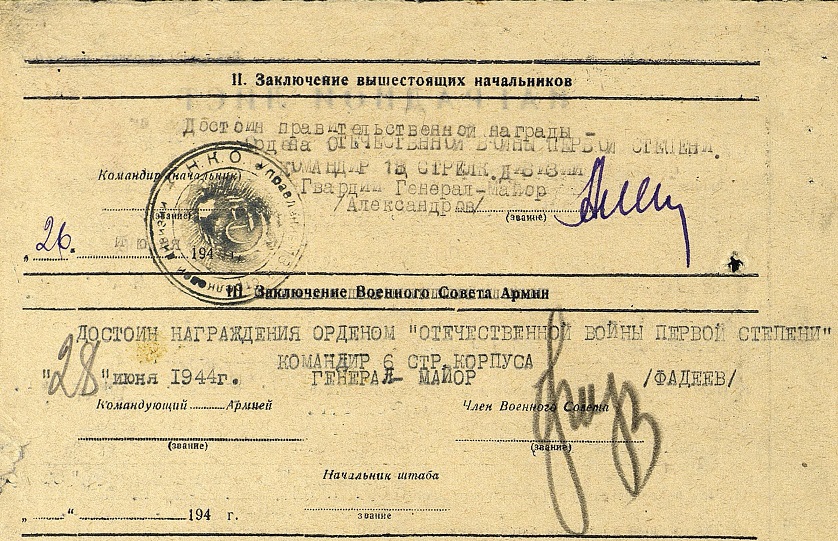 II. Заключение вышестоящих начальников
Достоин правительственной награды –
Ордена ОТЕЧЕСТВЕННОЙ ВОЙНЫ ПЕРВОЙ СТЕПЕНИ.
КОМАНДИР 18 СТРЕЛК.ДИВИЗИИ
Командир (начальник)
Гвардии Генерал-Майор
/Александров/
(звание) (звание)
„26. июня 194 г.
Н.К.О. ★ Управлен
III. Заключение Военного Совета Армии
ДОСТОИН НАГРАЖДЕНИЯ ОРДЕНОМ "ОТЕЧЕСТВЕННОЙ ВОЙНЫ ПЕРВОЙ СТЕПЕНИ"
КОМАНДИР 6 СТР.КОРПУСА
"28"июня 1944г. ГЕНЕРАЛ- МАЙОР /ФАДЕЕВ/
Командующий Армией Член Военного Совета
(звание) (звание)
Начальник штаба
„ “ 194 г.
звание